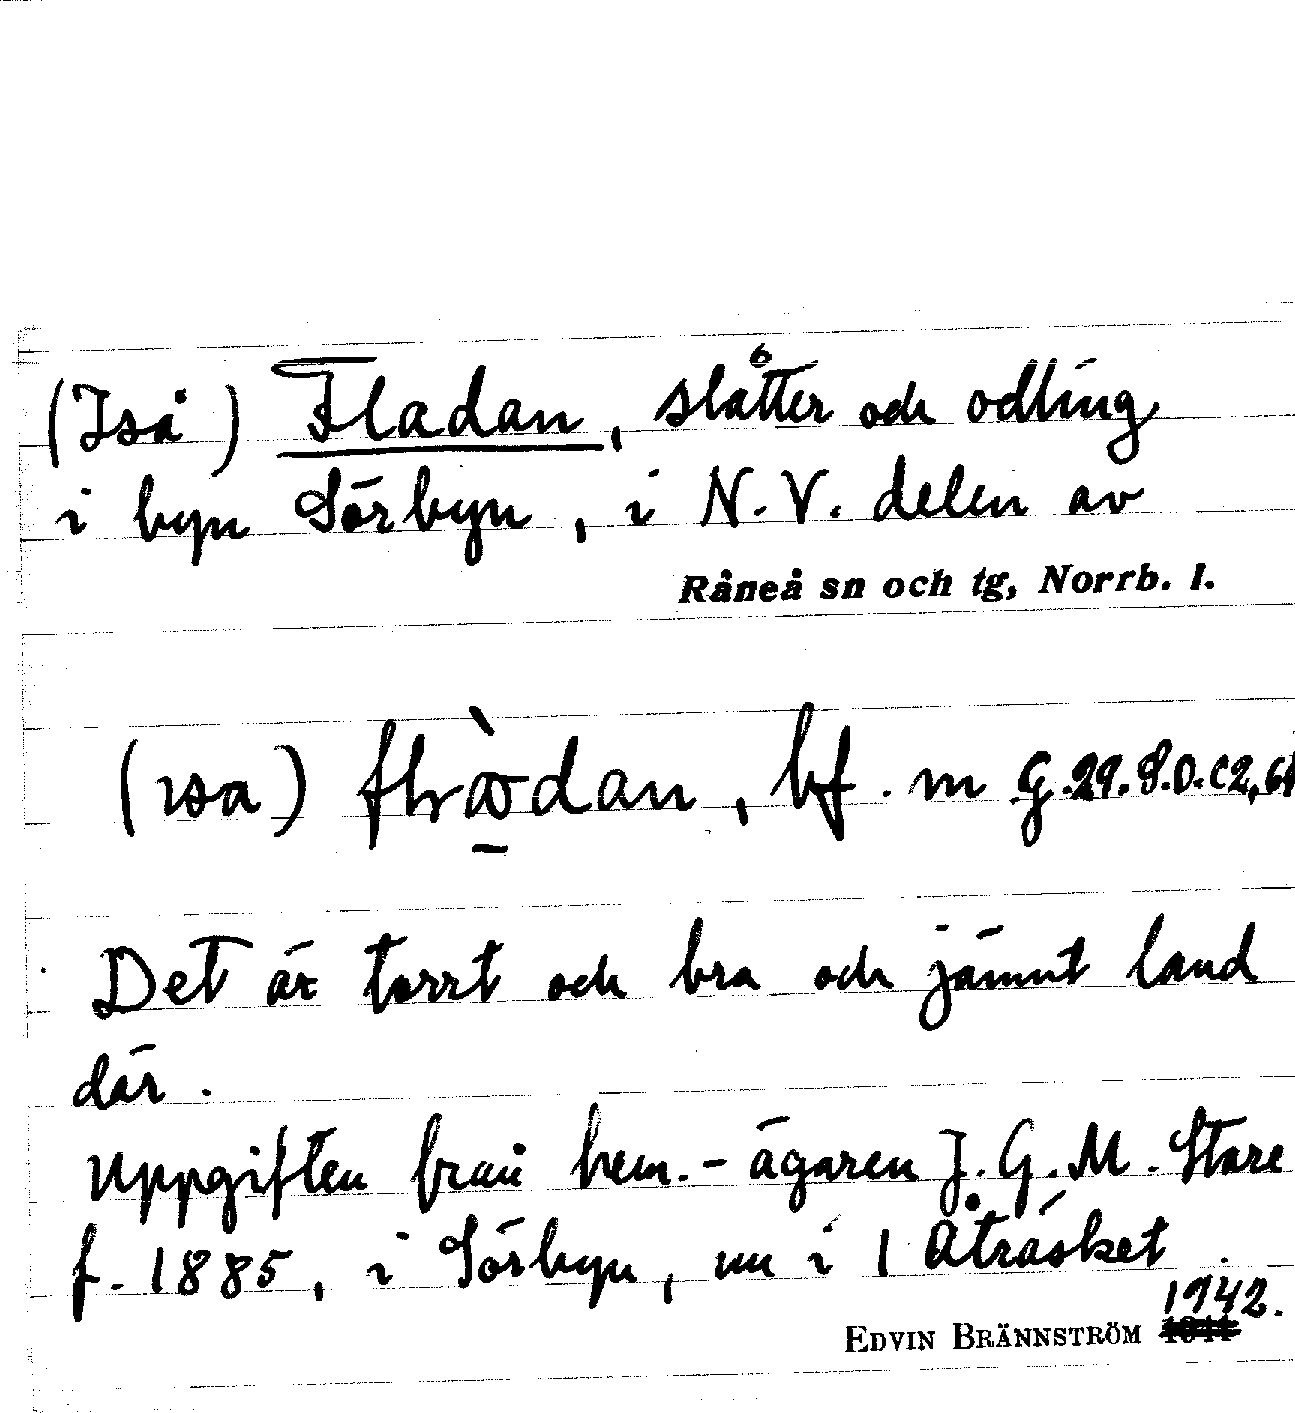 (Iså) Fladan, slåtter och odling
i byn Sörbyn, i N.V. delen av
Råneå sn och tg, Norrb. l.
(ısa) , bf. m G.29.8.D.C2,61
Det är torrt och bra och jämnt land
där.
Uppgiften från hem.-ägaren J.G.M. Stare
f. 1885, i Sörbyn, nu i l Åträsket.
1942.
EDVIN BRÄNNSTRÖM 1941